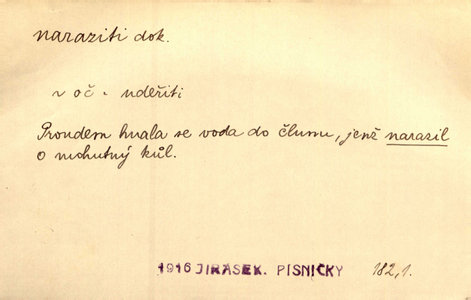 naraziti dok.
v oč. udeřiti
Proudem hnala se voda do člunu, jenž narazil
o mohutný kůl.
1916 JIRÁSEK. PÍSNIČKY 182,1.